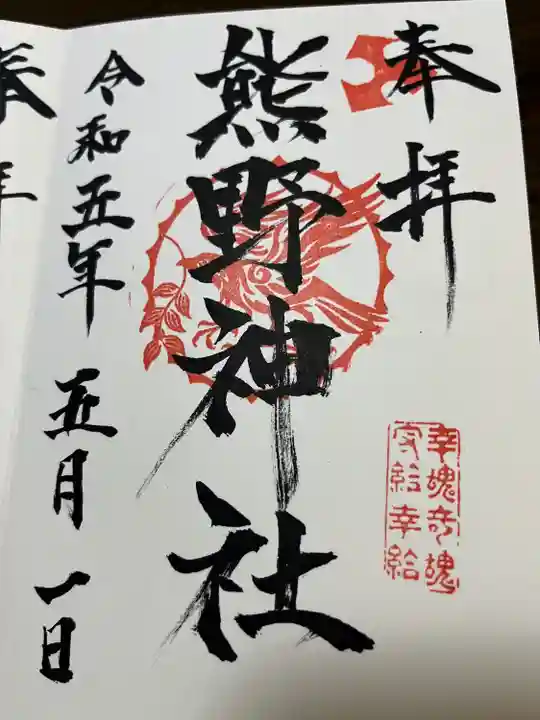 奉拝
熊野神社
令和五年 五月一日
幸魂奇魂
守給幸給
奉拝